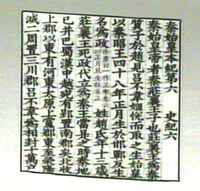 秦始皇本紀第六 史記六
秦始皇帝者秦莊襄王子也莊襄王爲秦
質子於趙見呂不韋姬悅而取之生始皇
以秦昭王四十八年正月生於邯鄲及生
名爲政 姓趙氏年十三歲
莊襄王死政代立爲秦王當是之時秦地
已并巴蜀漢中越宛有郢置南郡矣北收
上郡以東有河東太原上黨郡東至滎陽
滅二周置三川郡呂不韋爲相封十萬戶